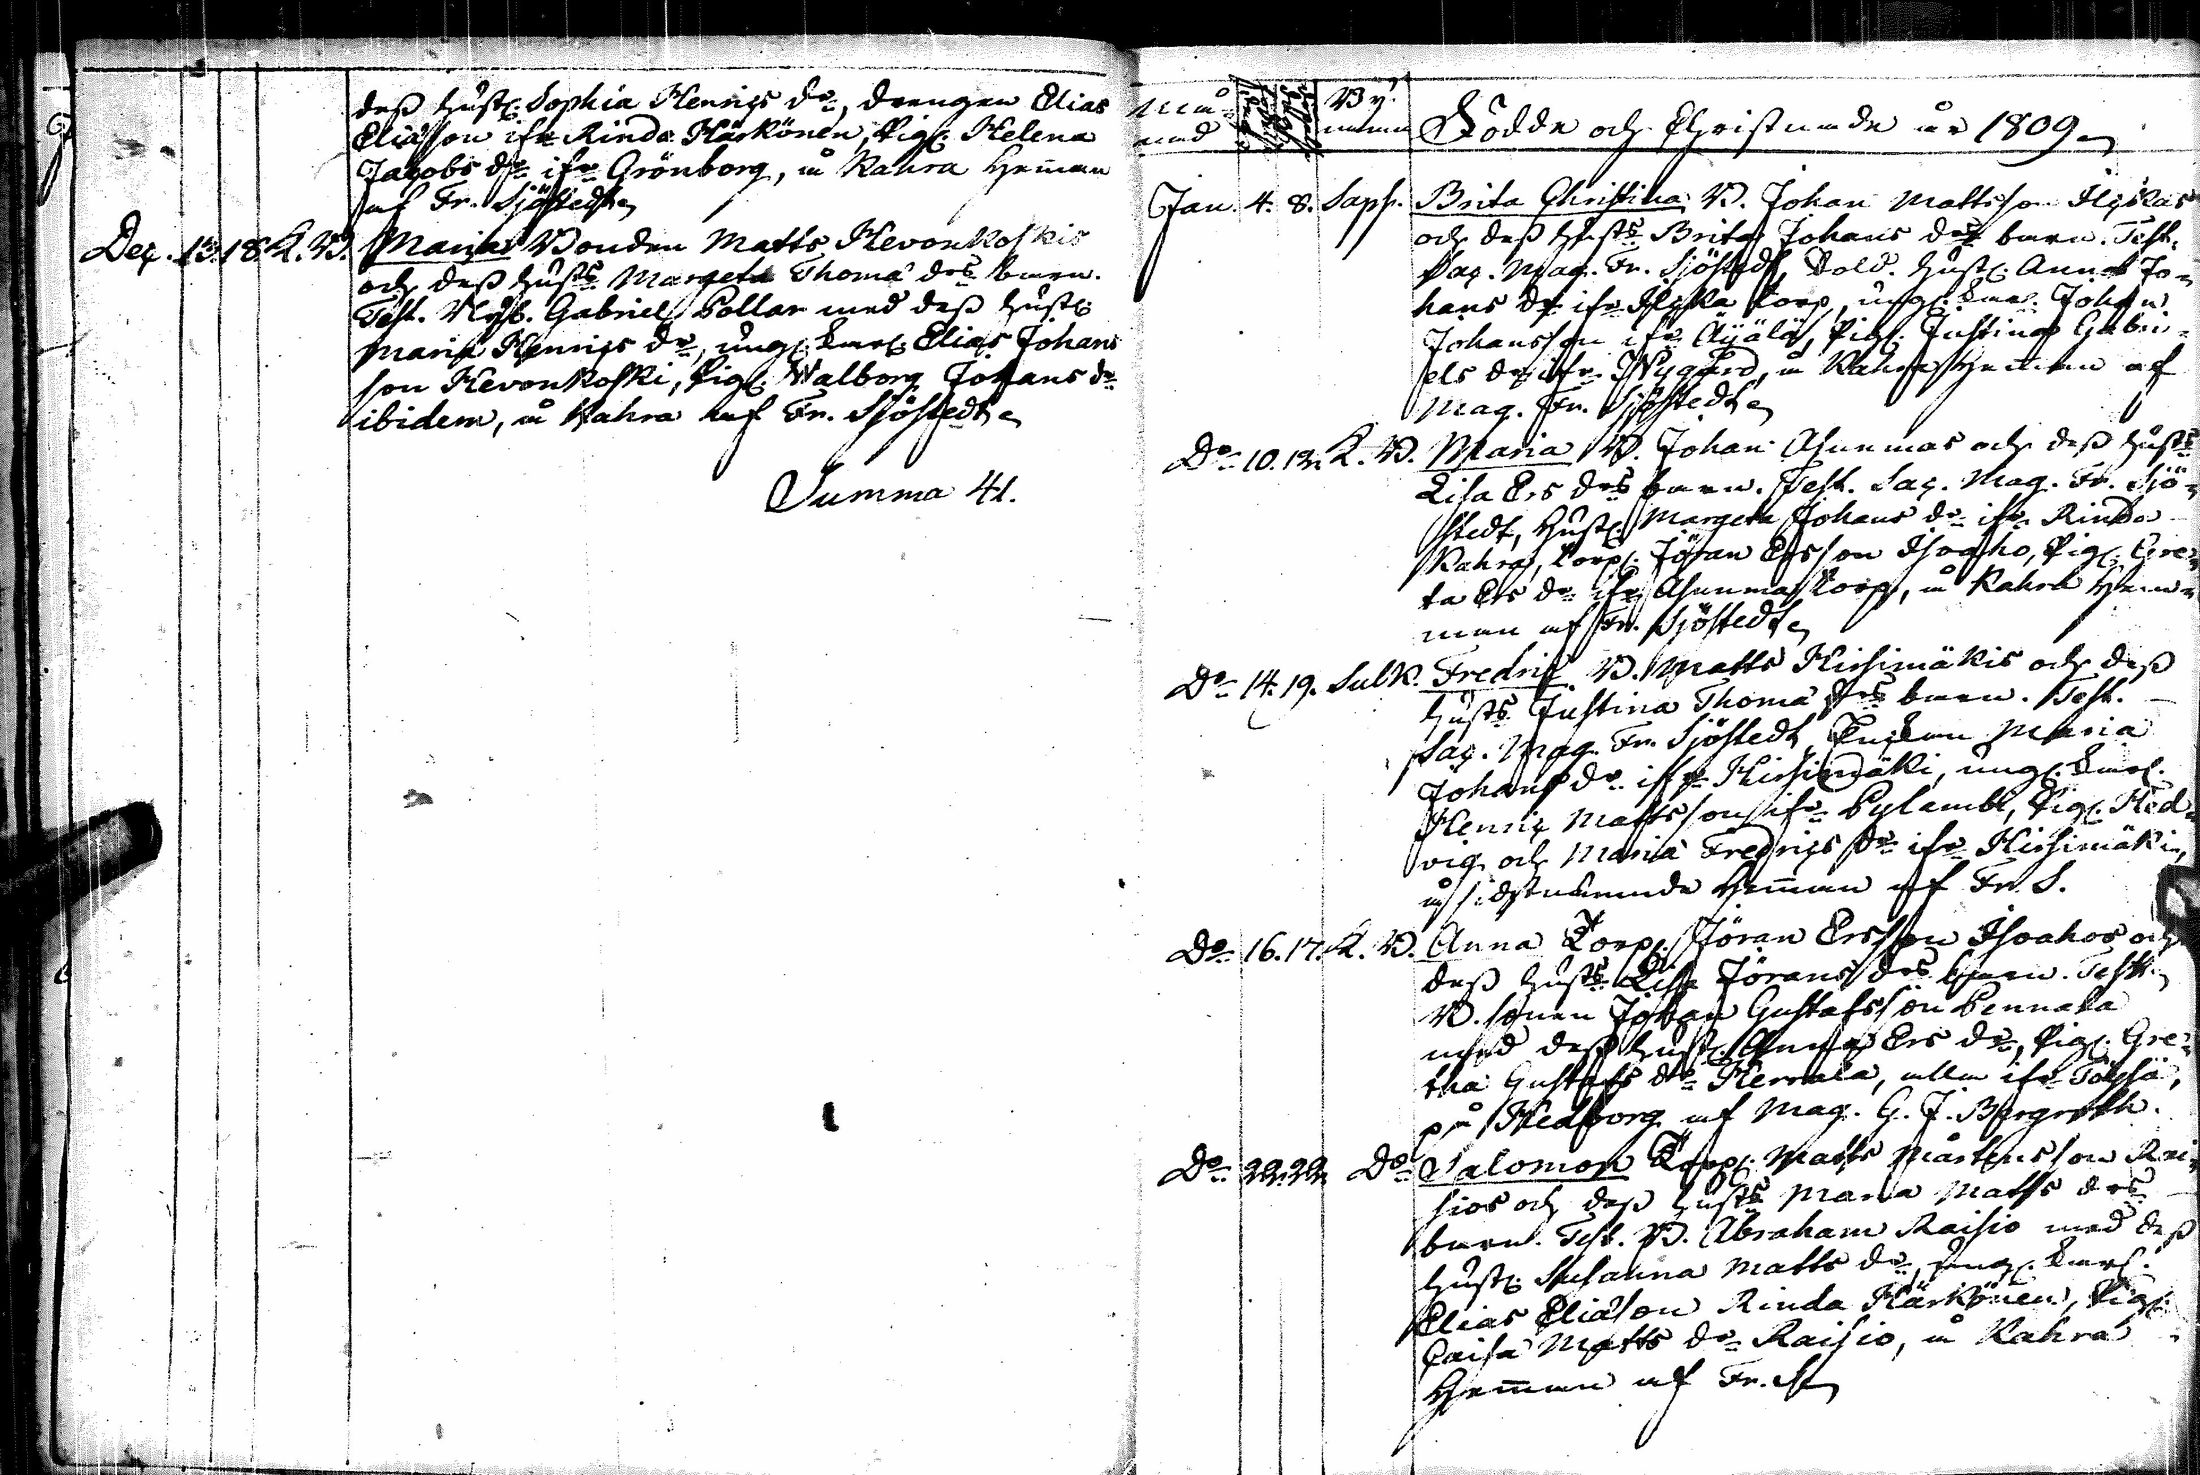 dess hust. Sophia Henrics dr, drengen Elias
Eliasson ifr Rinda Härkönen, Pig. Helena
Jacobs dr ifr Grönborg, å Kahra Hemman
af Fr. Sjöstedt
Dec. 13. 18. K. W. Maria Bonden Matts Hevonkoskis
och dess husts Margeta Thomæ drs barn.
Test. Nyb. Gabriel Pollar med dess hust.
Maria Henrics dr, ungk. Elias Johans
son Hevonkoski, Pig. Walborg Johans dr
ibidem, å Kahra af Fr. Sjöstedt
Summa 41.
Må
nad
By
namn
Födde och Christnade år 1809
Jan. 4. 8. Saps. Brita Christina B. Johan Mattsson Ilskas
och dess husts Brita Johans drs barn. Test.
Sac. Mag. Fr. Sjöstedt, Sold. hust. Anna Jo-
hans dr ifr Ilska torp, ungk. Johan
Johansson ifr Äyälä, Pig. Justina Gabri-
els dr ifr Nygård, å Kahra Hemman af
Mag. Fr. Sjöstedt
Do 10. 12. K. W. Maria B. Johan Asunmas och dess husts
Lisa Ers drs barn. Test. Sac. Mag. Fr. Sjö-
stedt, Hust. Margeta Johans dr ifr Rinda
Kahra, torp. Jöran Ersson Isoaho, Pig. Gre-
ta Ers dr ifr Asunmas torp, å Kahra Hem-
man af Fr. Sjöstedt
Do 14. 19. Sulk. Fredric B. Matts Hirsimäkis och dess
husts Justina Thomæ drs barn. Test.
Sac. Mag. Fr. Sjöstedt, Enkan Maria
Johans dr ifr Hirsimäki, ungk.
Henric Mattsson ifr Gylambi, Pig. Hed-
vig och Maria Fredrics dr ifr Hirsimäki,
å sidstnämnde Hemman af Fr. S.
Do 16. 17. K. W. Anna Torp. Jöran Ersson Isoahos och
dess husts Lisa Jörans drs barn. Test.
B. sonen Johan Gustafsson Pennala
med dess hust. Anna Ers dr, Pig. Gre-
tha Gustafs dr Herrala, alla ifr Töysä,
på Hedborg af Mag. G. J. Bergroth.
Do 22. 22. Do Salomon Torp. Matts Mårtensson Rai-
sios och dess husts Maria Matts drs
barn. Test. B. Abraham Raisio med dess
hust. Susanna Matts dr, ungk.
Elias Eliasson Rinda Härkönen, Pig.
Caisa Matts dr Raisio, å Kahra
Hemman af Fr. S